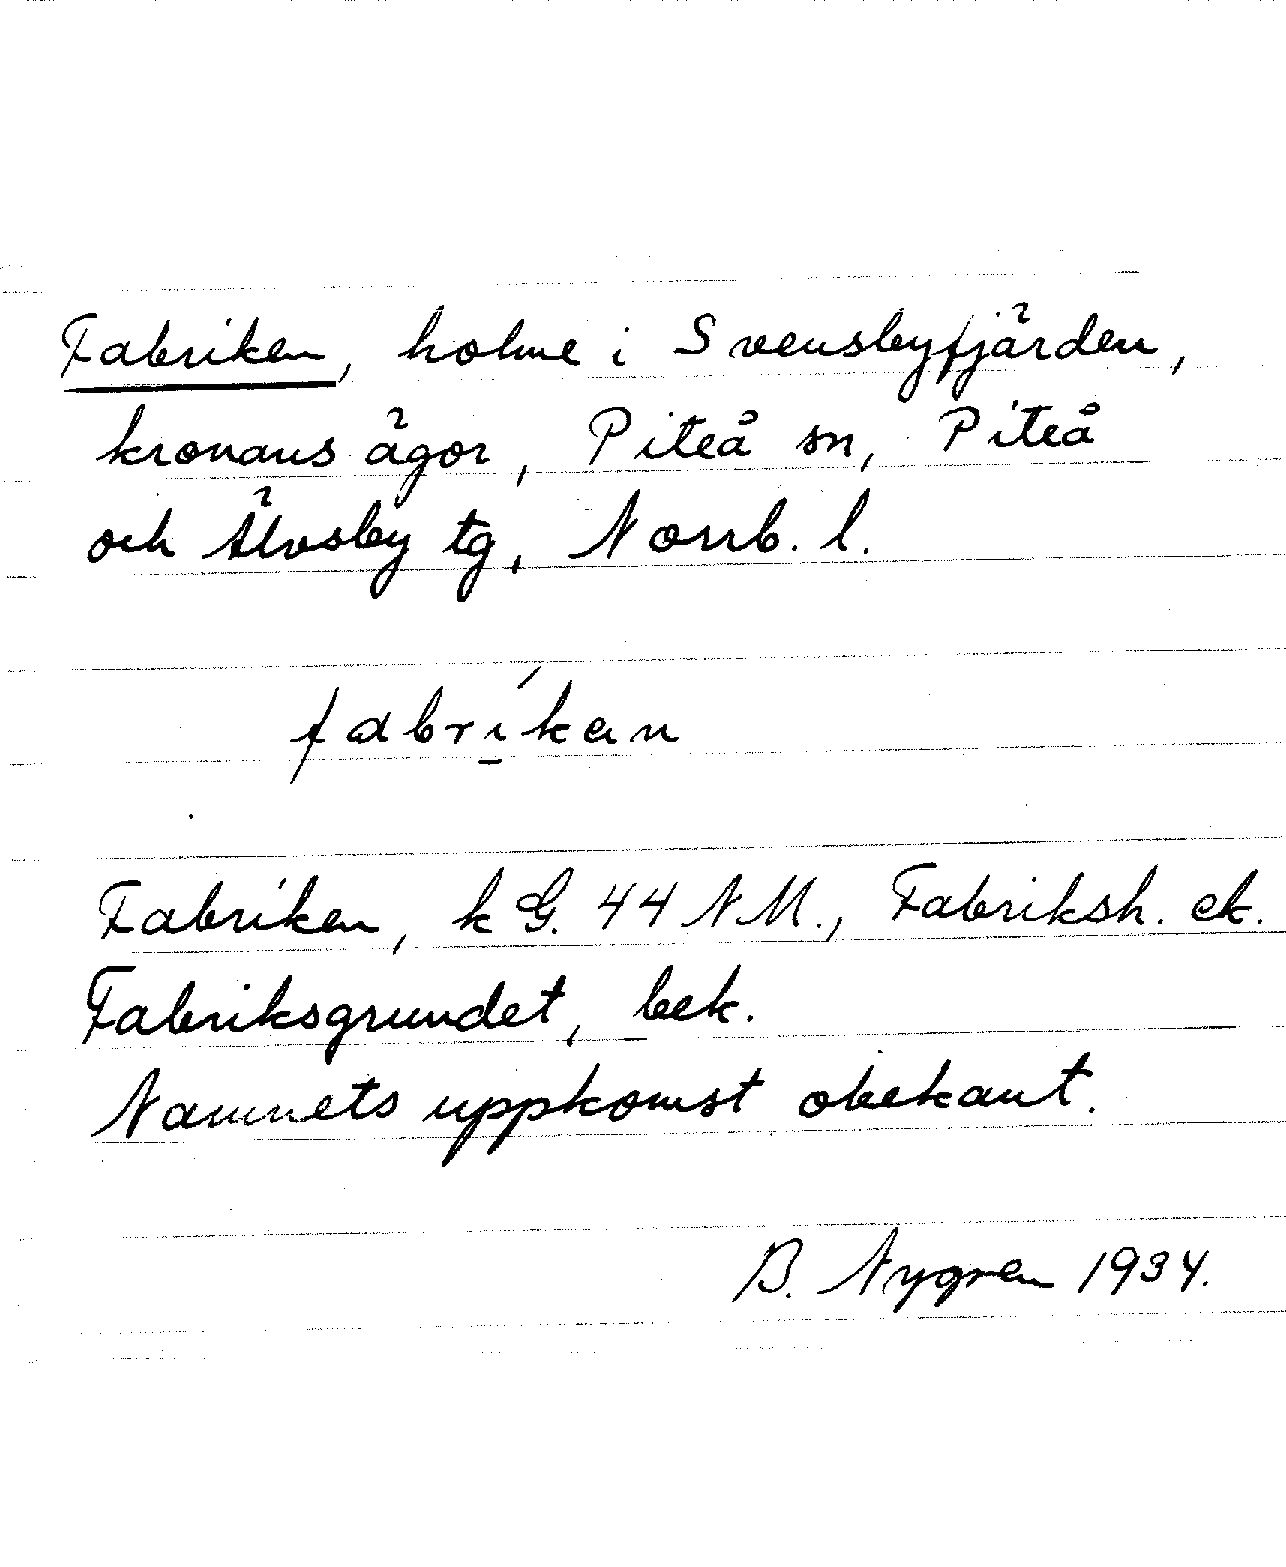 Fabriken, holme i Svensbyfjärden,
kronans ägor, Piteå sn, Piteå
och Älvsby tg, Norrb. l.
fabríkan
Fabriken, k G. 44 NM., Fabriksh. ek.
Fabriksgrundet, bek.
Namnets uppkomst obekant.
B. Nygren 1934.